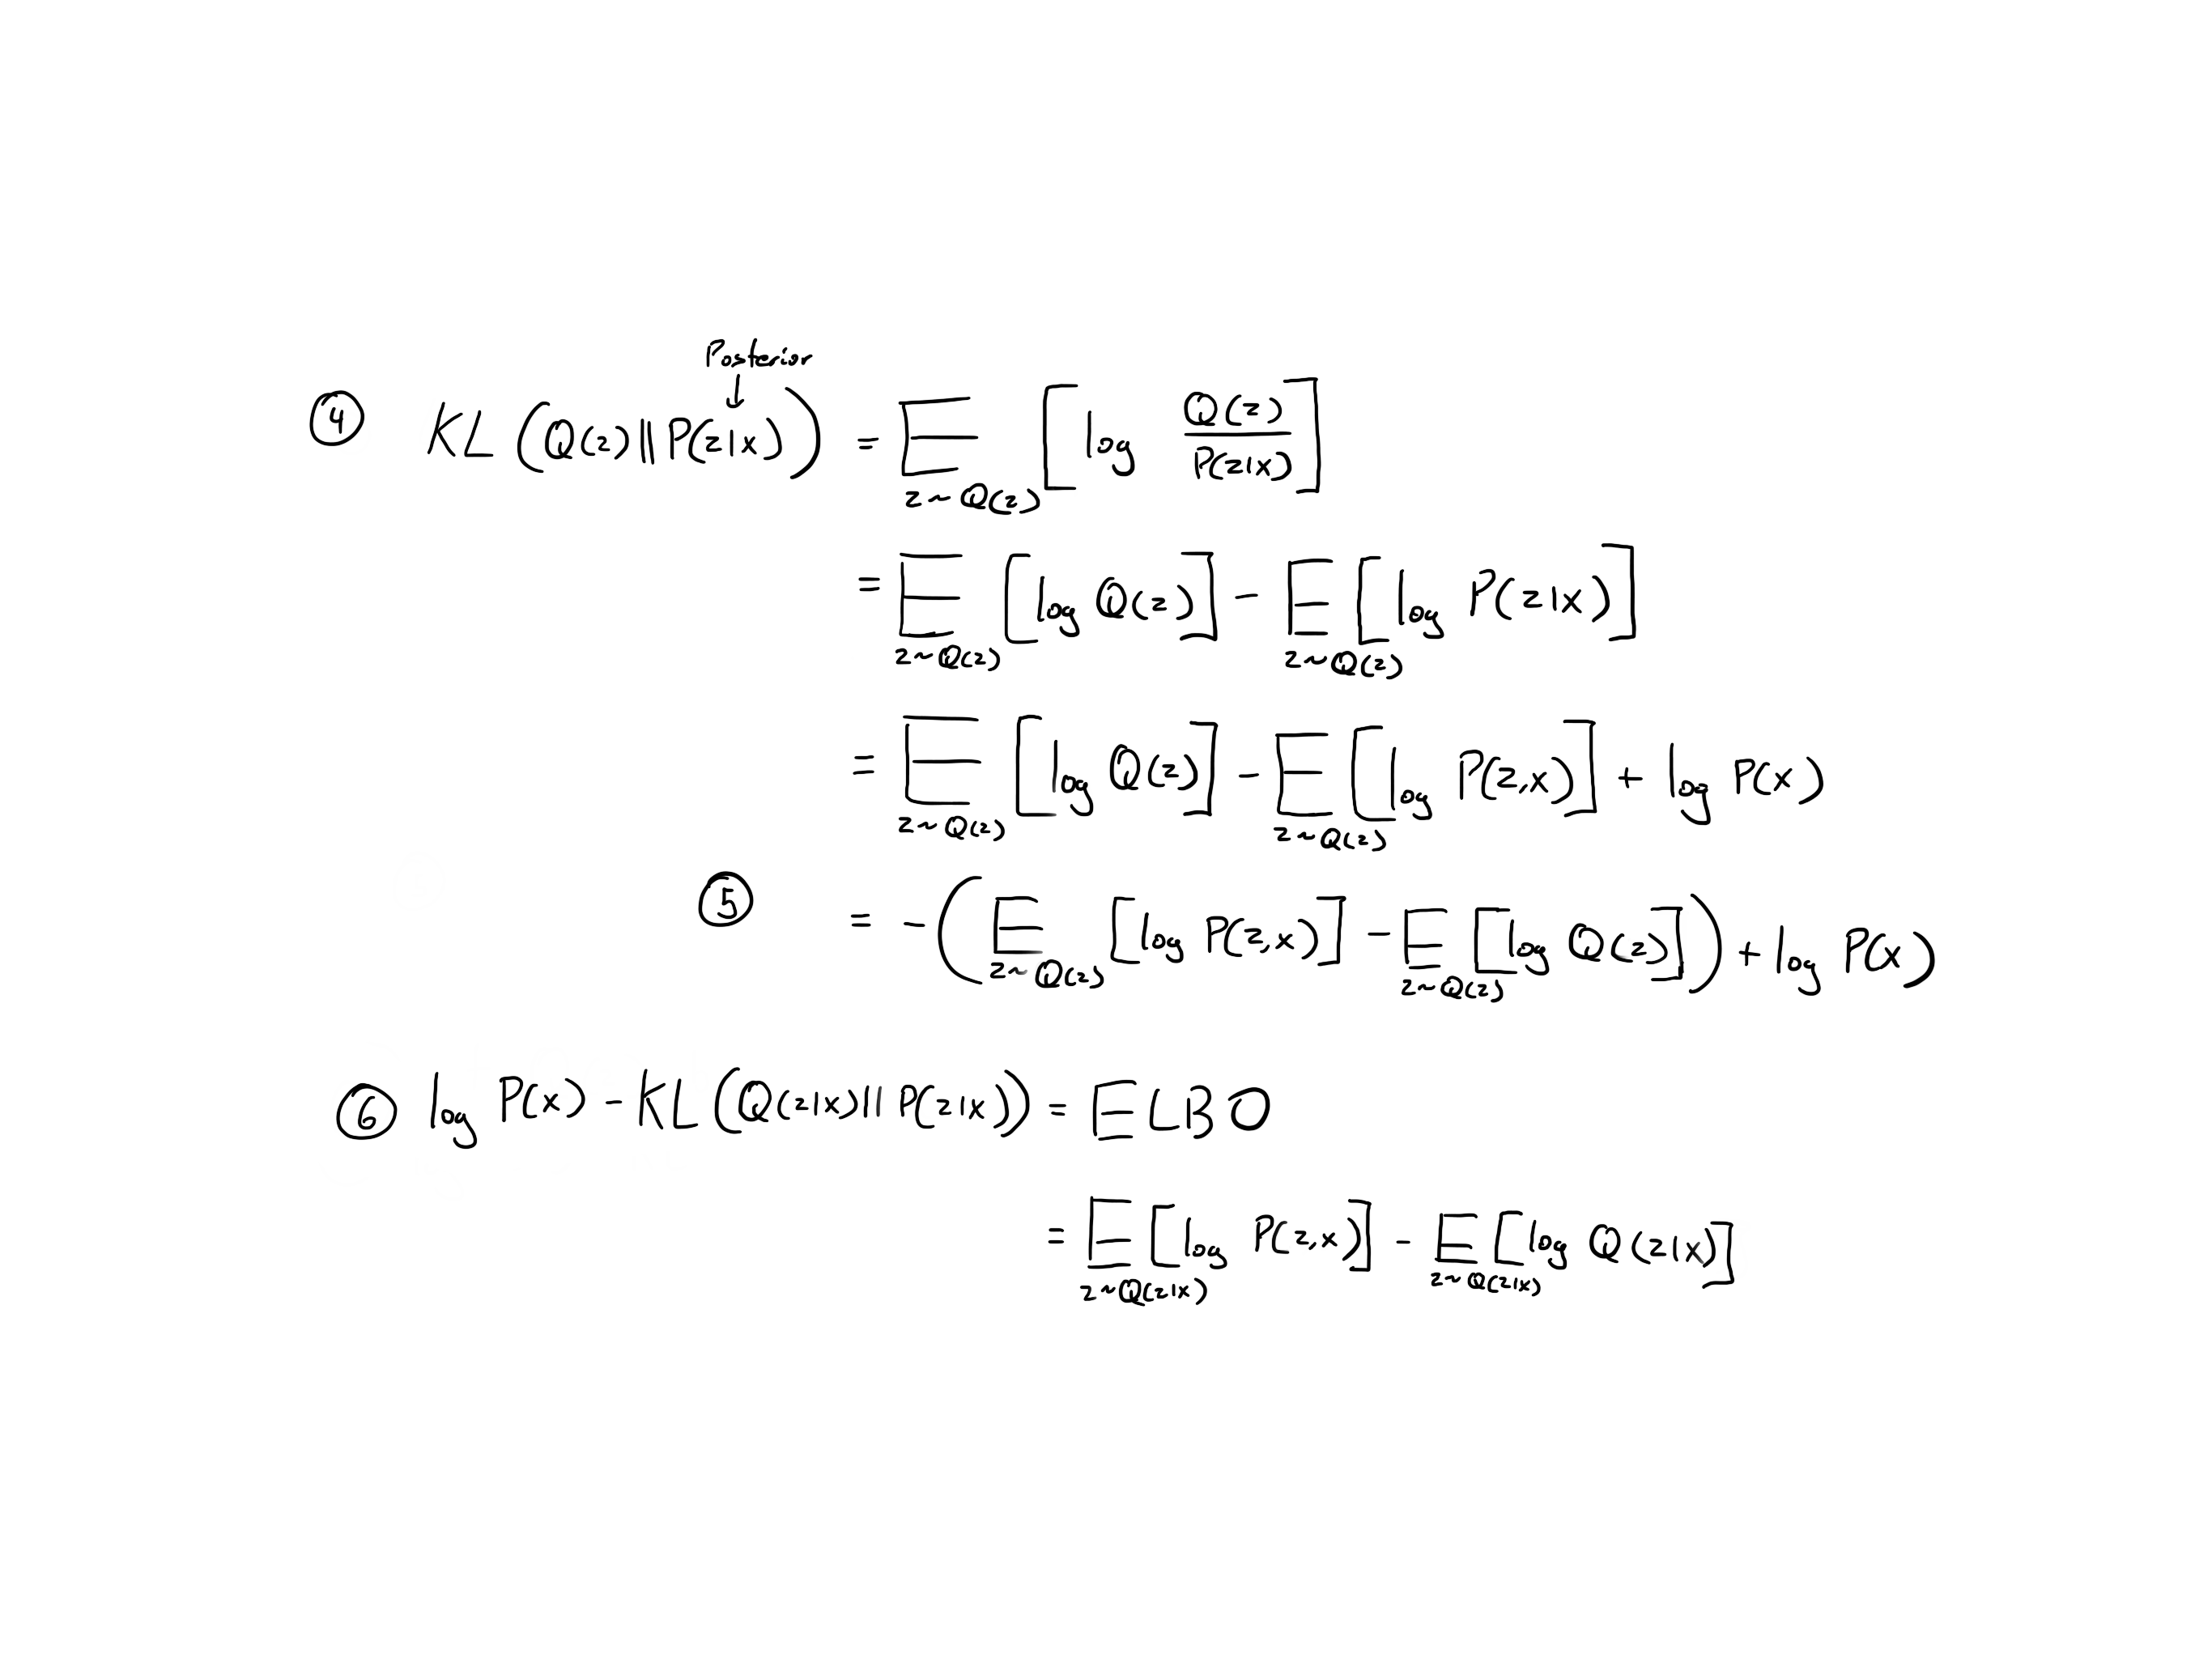 Posterior
↓
④ KL (Q(z) || P(z|x)) = E_{z~Q(z)} [log Q(z) / P(z|x)]
= E_{z~Q(z)} [log Q(z)] - E_{z~Q(z)} [log P(z|x)]
= E_{z~Q(z)} [log Q(z)] - E_{z~Q(z)} [log P(z,x)] + log P(x)
⑤ = - (E_{z~Q(z)} [log P(z,x)] - E_{z~Q(z)} [log Q(z)]) + log P(x)
⑥ log P(x) - KL (Q(z|x) || P(z|x)) = ELBO
= E_{z~Q(z|x)} [log P(z,x)] - E_{z~Q(z|x)} [log Q(z|x)]